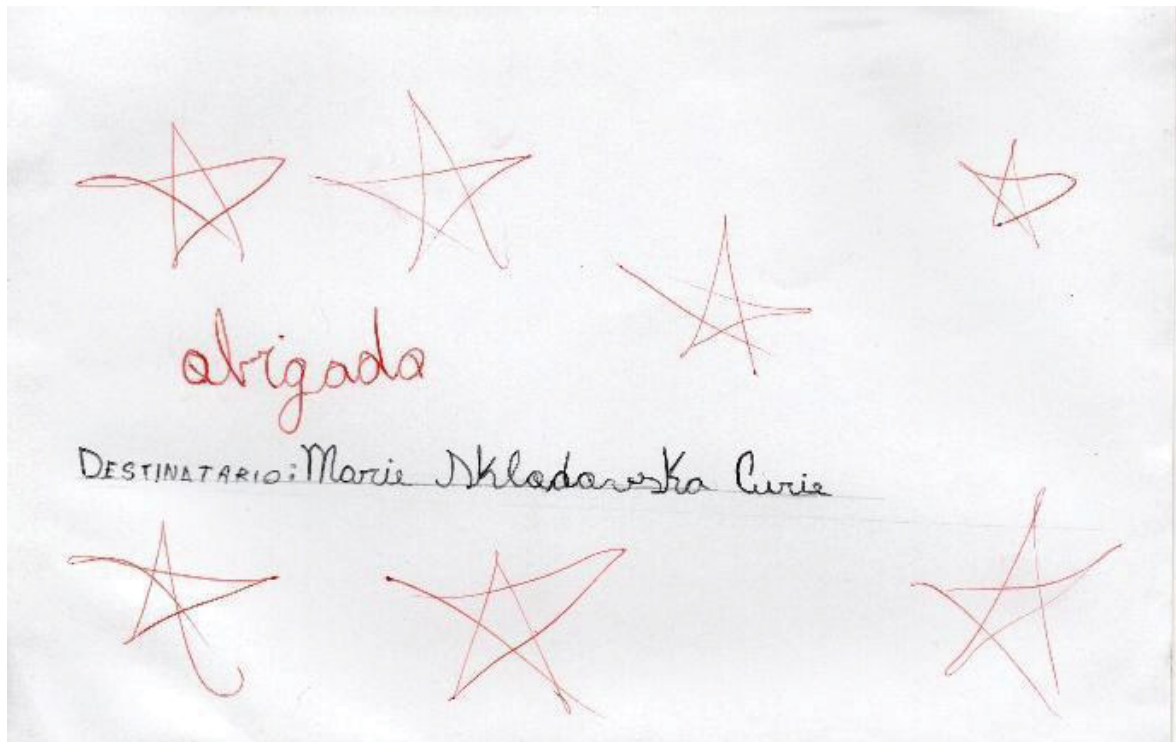 obrigada
DESTINATARIO: Marie Skladowska Curie